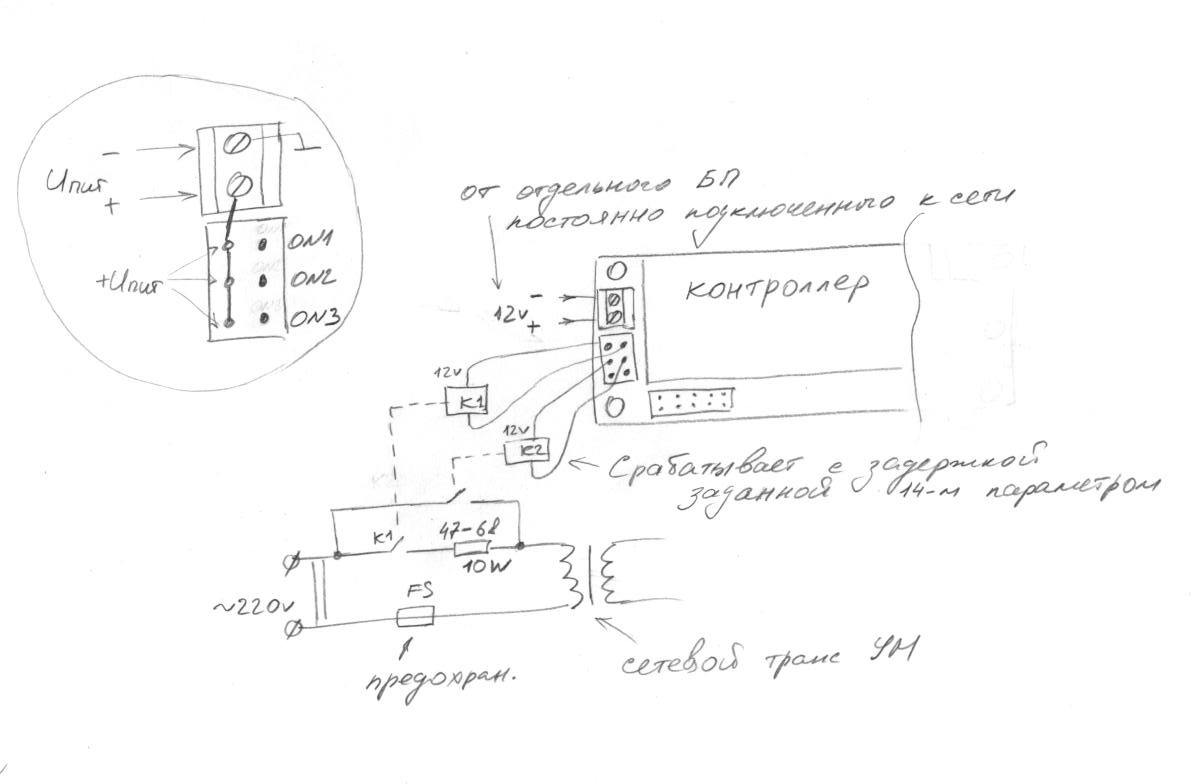 −
Uпит
+
+Uпит
ON1
ON2
ON3
от отдельного БП
постоянно подключенного к сети
контроллер
12v
−
+
12v
K1
12v
K2
Срабатывает с задержкой
заданной 14-м параметром
K1
47-68
10W
FS
~220v
предохран.
сетевой транс УМ